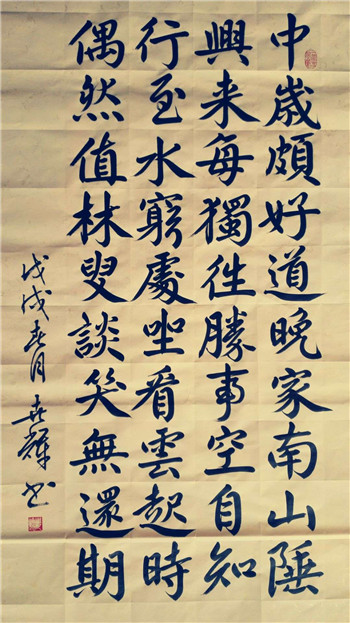 中歲頗好道晚家南山陲
興来每獨徃勝事空自知
行至水窮處坐看雲起時
偶然值林叟談笑無還期
戊戌春月輝书